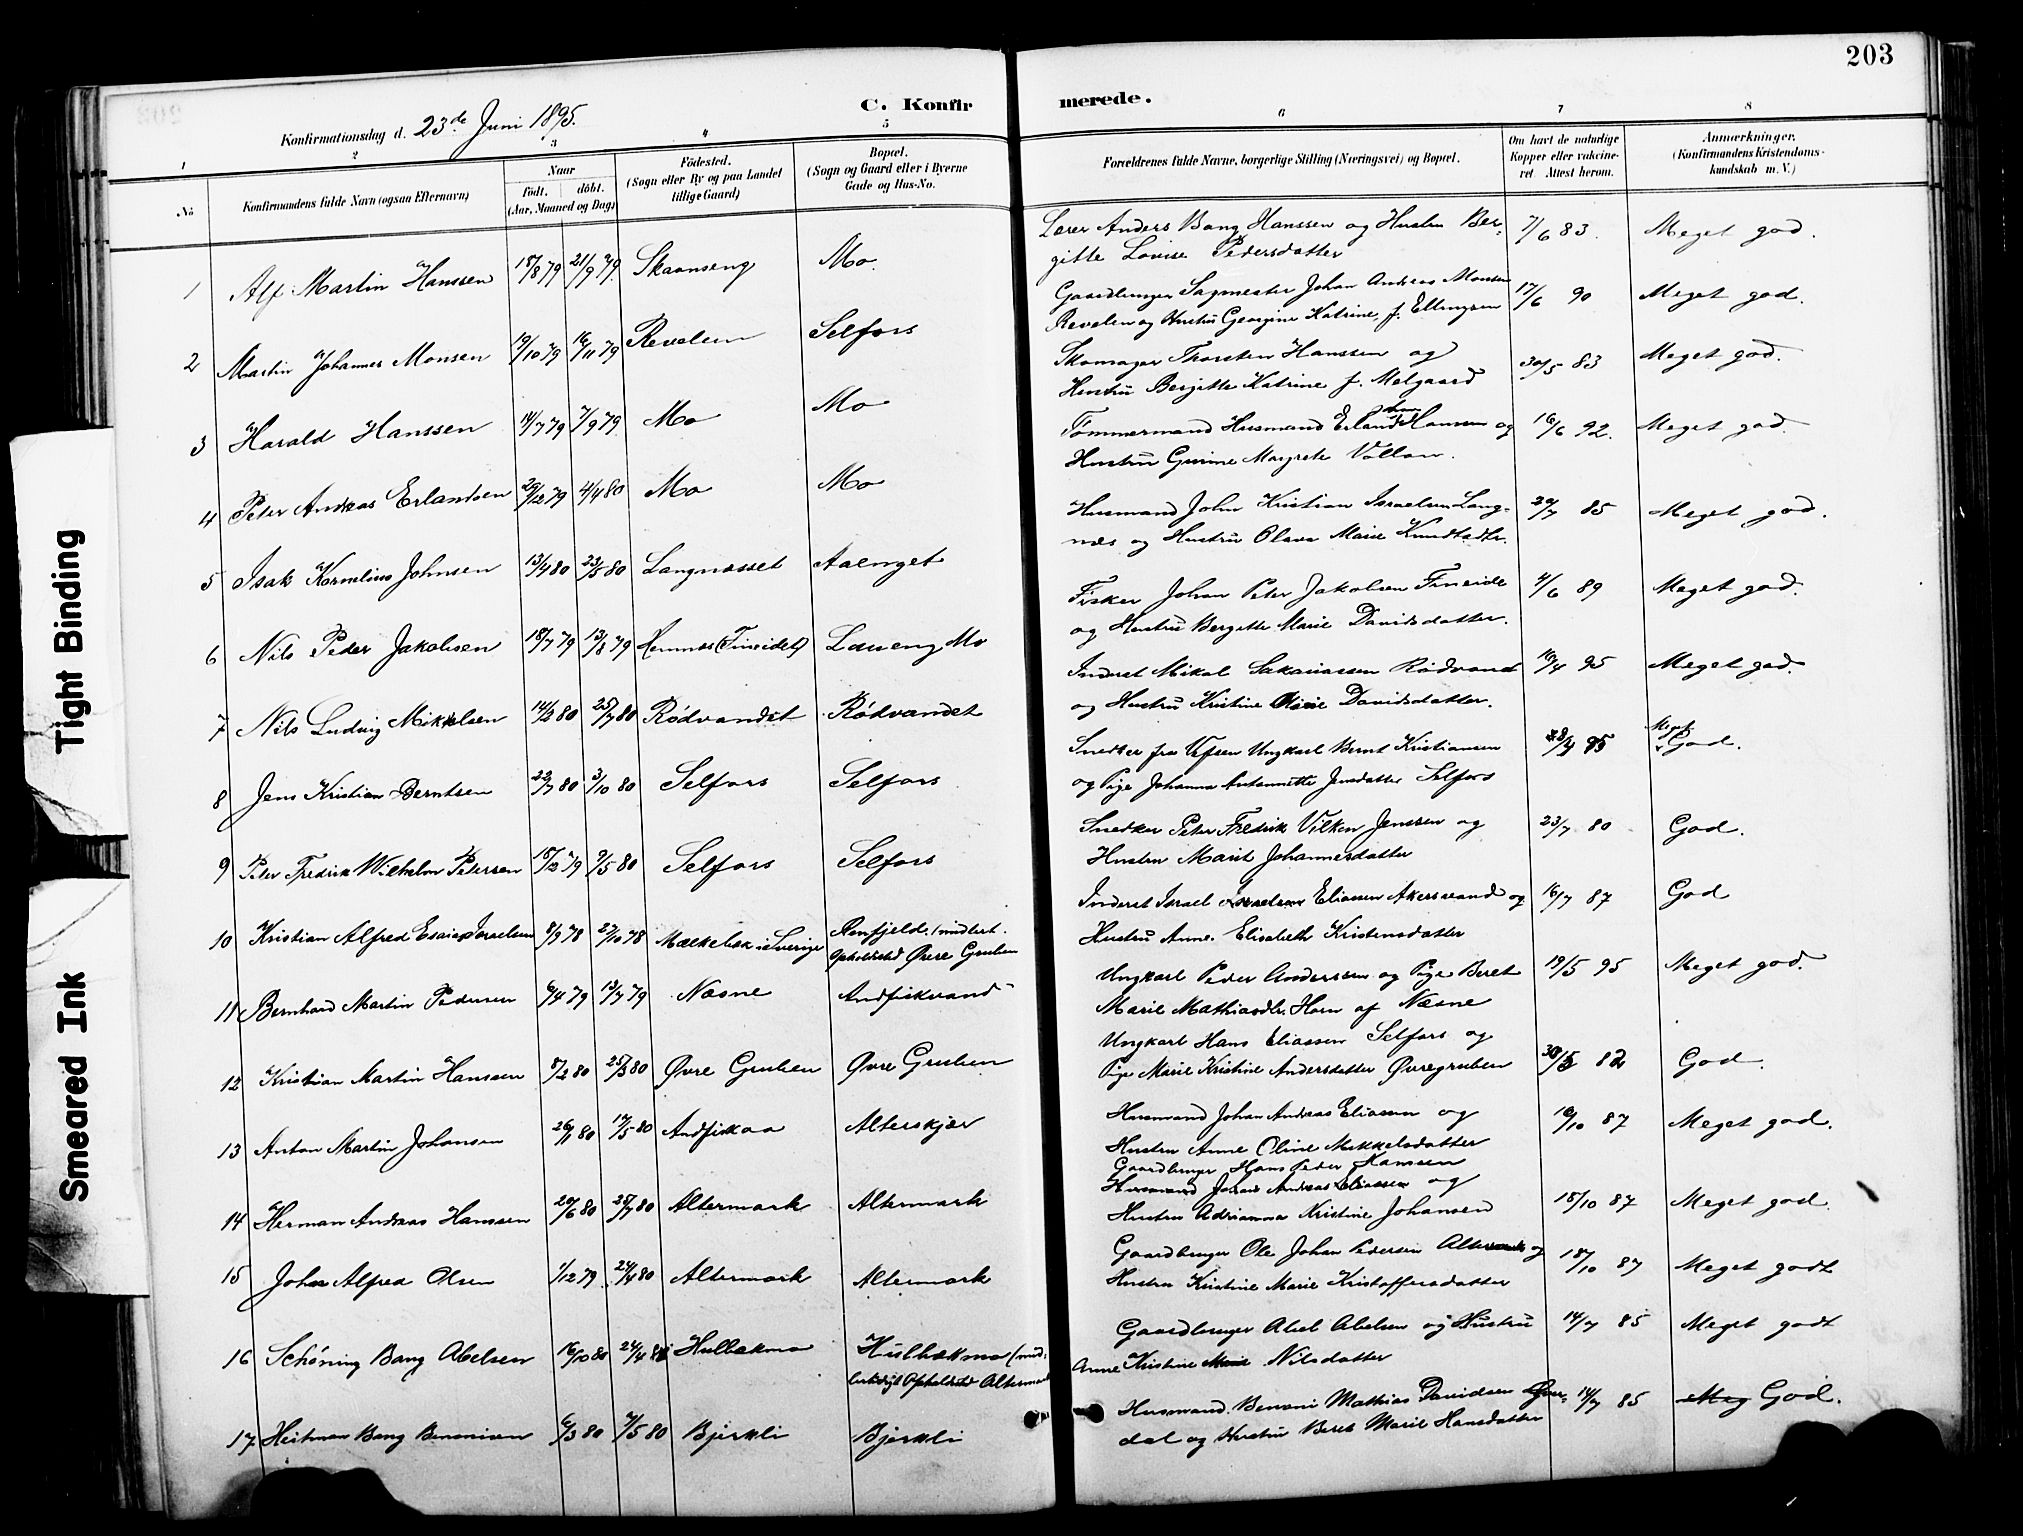 203
C. Konfir
merede.
Konfirmationsdag d. 23de Juni 1895.
1
2
3
4
5
6
7
8
No
Konfirmandens fulde Navn (ogsaa Efternavn)
Naar
födt. döbt.
(Aar, Maaned og Dag)
Födested.
(Sogn eller By og paa Landet
tillige Gaard)
Bopæl.
(Sogn og Gaard eller i Byerne
Gade og Hus-No.
Forældrenes fulde Navne, borgerlige Stilling (Næringsvei) og Bopæl.
Om havt de naturlige
Kopper eller vakcine-
ret. Attest herom.
Anmærkninger.
(Konfirmandens Kristendoms-
kundskab m. V.)
1 Alf Martin Hanssen 18/8 79 21/9 79. Skaanseng Mo.
Lærer Anders Bang Hanssen og Hustru Ber- 7/6 83. Meget god.
gitte Lovise Pedersdatter
2 Martin Johannes Monsen 19/10 79 16/11 79 Revelen Selfors
Gaardbruger Sagmester Johan Andreas Monsen 17/6 90 Meget god.
Revelen og Hustru Georgine Katrine, f. Ellingsen
3 Harald Hanssen 14/7 79 7/9 79. Mo Mo
Skomager Thorsten Hanssen og 30/5 83 Meget god.
Hustru Bergitte Katrine f. Melgaard
4 Peter Andreas Erlandsen 29/12 79 4/4 80 Mo Mo
Tömmermand Husmand Erland Hansen og 16/6 92. Meget god.
Hustru Gurine Margrete Vollan.
5 Isak Kornelius Johnsen 13/4 80 23/5 80 Langnæsset Aaenget
Husmand John Kristian Israelsen Lang- 20/7 85 Meget god.
næs og Hustru Olava Marie Knudtsdtr.
6 Nils Peder Jakobsen 18/7 79 13/8 79 Hemnæs (Fineidet) Laueng Mo
Fisker Johan Peter Jakobsen Fineide 4/6 89 Meget god.
og Hustru Bergitte Marie Davidsdatter.
7 Nils Ludvig Mikkelsen 14/3 80 25/7 80 Rødvandet Rødvandet
Inderst Mikal Sakariassen Rødvand 16/4 95 Meget god.
og Hustru Kristine Marie Davidsdatter.
8 Jens Kristian Berntsen 22/7 80 3/10 80 Selfors Selfors
Snedker fra Vefsen Ungkarl Bernt Kristiansen 28/4 95 Meget God.
og Pige Johanna Antonnette Jensdatter Selfors
9 Peter Fredrik Wilhelm Petersen 18/12 79 9/5 80 Selfors Selfors
Snedker Peter Fredrik Vilken Jenssen og 23/7 80 God.
Hustru Marit Johannesdatter
10 Kristian Alfred Esaias Israelsen 8/9 78 27/10 78 Mælkebæk i Sverige Renfjeldet, midlert.
Opholdssted Øvre Gruben
Inderst Israel Israelsen Eliassen Akersvand og 16/7 87 God
Hustru Anne Elisabeth Kristensdatter
11 Bernhard Martin Pedersen 6/4 79 13/7 79 Næsne Andfiskvand
Ungkarl Peder Anderssen og Pige Beret 19/5 95 Meget god.
Marie Mathiasdtr. Horn af Næsne
12 Kristian Martin Hanssen 8/2 80 25/3 80 Øvre Gruben Øvre Gruben
Ungkarl Hans Eliassen Selfors og
Pige Marie Kristine Andersdatter Øvregruben 30/5 82 God.
13 Anton Martin Johansen 26/1 80 17/5 80 Andfiskaa Alterskjær
Husmand Johan Andreas Eliasen og 10/10 87 Meget god.
Hustru Anne Oline Mikkelsdatter
14 Herman Andreas Hanssen 20/6 80 25/7 80 Altermark Altermark
Gaardbruger Hans Peder Hanssen
Husmand Johan Andreas Eliassen og
Hustru Adrianna Kristine Johansen 18/10 87 Meget god.
15 Johan Alfred Olsen 1/12 79. 24/4 80 Altermark Altermark
Gaardbruger Ole Johan Pedersen Altermark og 18/10 87 Meget godt
Hustru Kristine Marie Kristoffersdatter
16 Schöning Bang Abelsen 16/10 80 24/4 81 Hulbækmo Hulbækmo (mid-
lertidigt Opholdssted Altermark
Gaardbruger Abel Abelsen og Hustru 14/7 85 Meget godt
Anne Kristine Marie Nilsdatter
17 Heitman Bang Benonisen 6/3 80 4/5 80 Bjerkli Bjerkli
Husmand Benoni Mathias Davidsen 14/7 85 Meg God.
dal og Hustru Beret Marie Hansdatter
Tight Binding
Smeared Ink